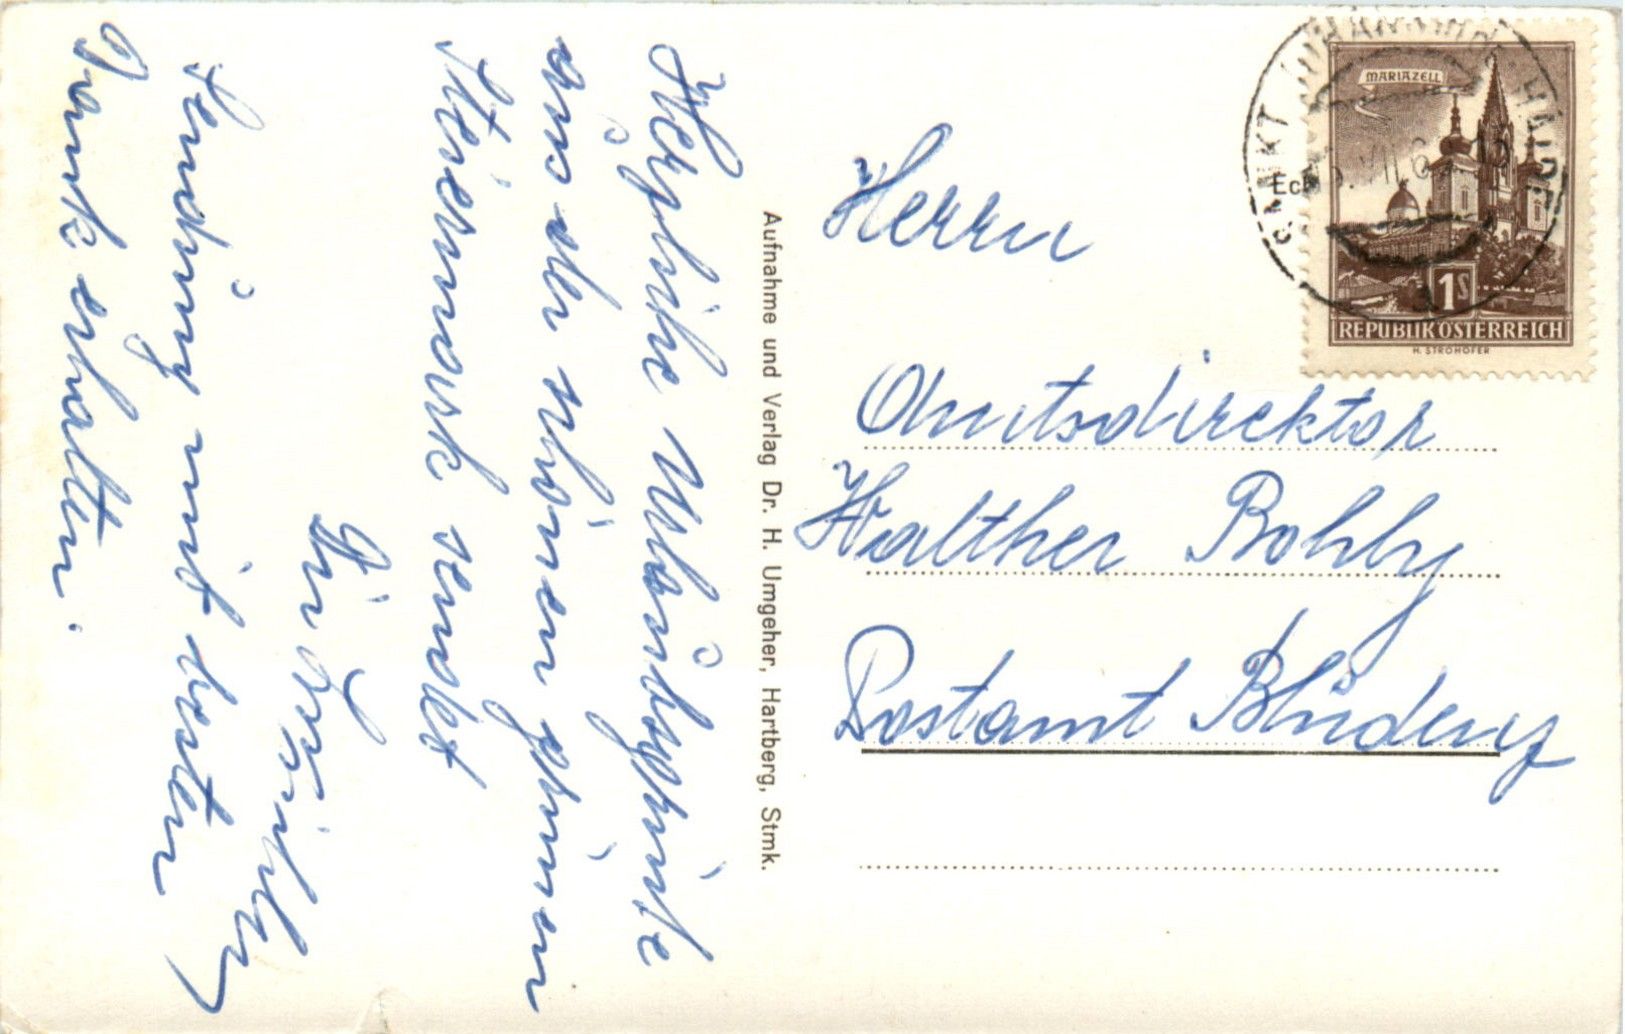 Herzliche Urlaubsgrüße
aus der schönen grünen
Steiermark sendet
Sendung mit besten
Dank erhalten.
Aufnahme und Verlag Dr. H. Umgeher, Hartberg, Stmk.
Herrn
Amtsdirektor
Walther Bohly
Postamt Bludenz
MARIAZELL
1S
REPUBLIK ÖSTERREICH
H. STROHOFER
SANKT
HAIDE
Ech